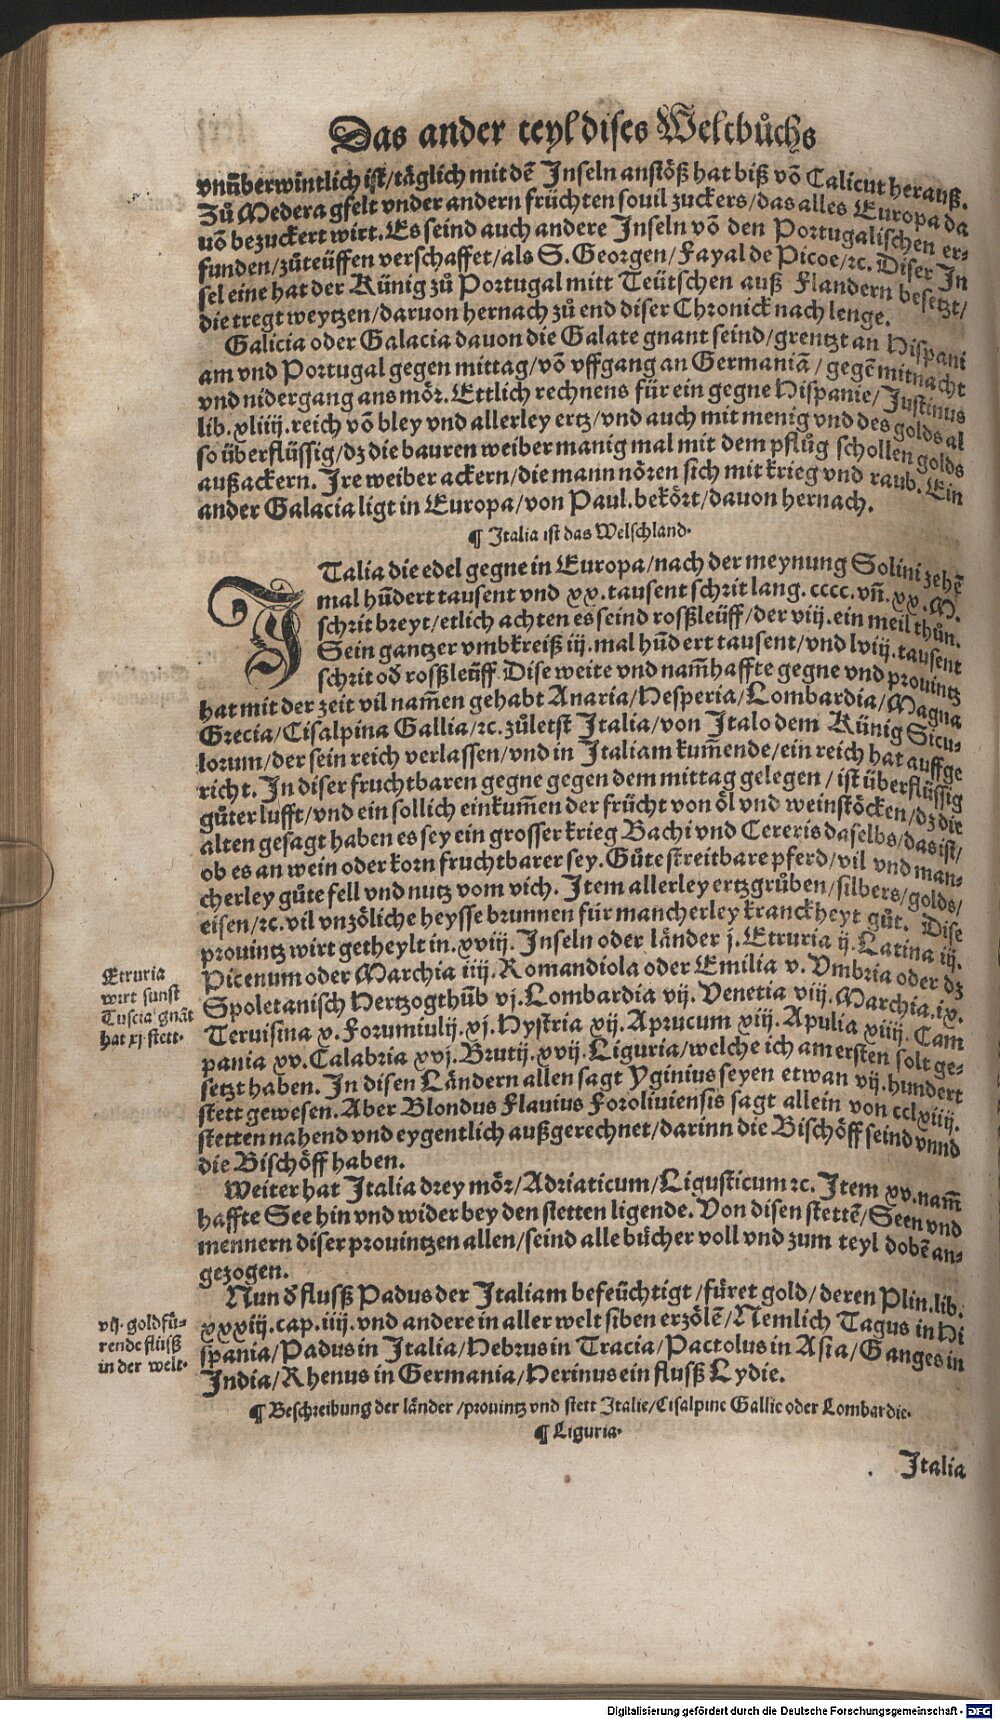 Das ander teyl dises Weltbůchs
vnüberwintlich ist/täglich mit dē Inseln anstöß hat biß vō Calicut herauß.
Zů Medera gfelt vnder andern früchten souil zuckers/das alles Europa da
uō bezuckert wirt. Es seind auch andere Inseln vō den Portugalischen er-
funden/zůteüffen verschaffet/als S. Georgen/Fayal de Picoe/ꝛc. Diser In
sel eine hat der Künig zů Portugal mitt Teütschen auß Flandern besetzt/
die tregt weytzen/daruon hernach zů end diser Chronick nach lenge.
Galicia oder Galacia dauon die Galate gnant seind/grentzt an Hispani
am vnd Portugal gegen mittag/vō vffgang an Germaniā/gegē mitnacht
vnd nidergang ans mör. Ettlich rechnens für ein gegne Hispanie/Justinus
lib. xliiij. reich vō bley vnd allerley ertz/vnd auch mit menig vnd des golds al
so überflüssig/dz die bauren weiber manig mal mit dem pflůg schollen golds
außackern. Ire weiber ackern/die mann nören sich mit krieg vnd raub. Ein
ander Galacia ligt in Europa/von Paul. bekört/dauon hernach.
¶ Italia ist das Welschland.
ITalia die edel gegne in Europa/nach der meynung Solini zehē
mal hūdert tausent vnd xx. tausent schrit lang. cccc. vn̄. xx. M.
schrit breyt/etlich achten es seind rosßleüff/der viij. ein meil thůn.
Sein gantzer vmbkreiß iij. mal hūdert tausent/vnd lviij. tausent
schrit oď rosßleüff. Dise weite vnd nam̄haffte gegne vnd prouintz
hat mit der zeit vil nam̄en gehabt Anaria/Hesperia/Lombardia/Magna
Grecia/Cisalpina Gallia/ꝛc. zůletst Italia/von Italo dem Künig Sicu-
lorum/der sein reich verlassen/vnd in Italiam kum̄ende/ein reich hat auffge
richt. In diser fruchtbaren gegne gegen dem mittag gelegen/ist überflüssig
gůter lufft/vnd ein sollich einkum̄en der frücht von öl vnd weinstöcken/dz die
alten gesagt haben es sey ein grosser krieg Bachi vnd Cereris daselbs/das ist/
ob es an wein oder korn fruchtbarer sey. Gůte streitbare pferd/vil vnd man-
cherley gůte fell vnd nutz vom vich. Item allerley ertzgrůben/silbers/golds/
eisen/ꝛc. vil vnzöliche heysse brunnen für mancherley kranckheyt gůt. Dise
prouintz wirt getheylt in. xviij. Inseln oder länder j. Etruria ij. Latina iij.
Picenum oder Marchia iiij. Romandiola oder Emilia v. Vmbria oder dz
Spoletanisch Hertzogthůb vj. Lombardia vij. Venetia viij. Marchia. ix.
Teruisina x. Forumiulij. xj. Hystria xij. Aprucum xiij. Apulia xiiij. Cam
pania xv. Calabria xvj. Brutij. xvij. Liguria/welche ich am ersten solt ge-
setzt haben. In disen Ländern allen sagt Yginius seyen etwan vij. hundert
stett gewesen. Aber Blondus Flauius Foroliuiensis sagt allein von cclxiiij.
stetten nahend vnd eygentlich außgerechnet/darinn die Bischöff seind vnnd
die Bischöff haben.
Etruria
wirt sunst
Tuscia gnāt
hat xj stett.
Weiter hat Italia drey mör/Adriaticum/Ligusticum ꝛc. Item xv. nam̄
haffte See hin vnd wider bey den stetten ligende. Von disen stettē/Seen vnd
mennern diser prouintzen allen/seind alle bücher voll vnd zum teyl dobē an-
gezogen.
Nun ď flusß Padus der Italiam befeüchtigt/füret gold/deren Plin. lib.
xxxiij. cap. iiij. vnd andere in aller welt siben erzölē/Nemlich Tagus in Hi
spania/Padus in Italia/Hebrus in Tracia/Pactolus in Asia/Ganges in
India/Rhenus in Germania/Herinus ein flusß Lydie.
vij. goldfü-
rende flüsß
in der welt.
¶ Beschreibung der länder/prouintz vnd stett Italie/Cisalpine Gallie oder Lombardie.
¶ Liguria.
Italia
Digitalisierung gefördert durch die Deutsche Forschungsgemeinschaft - DFG